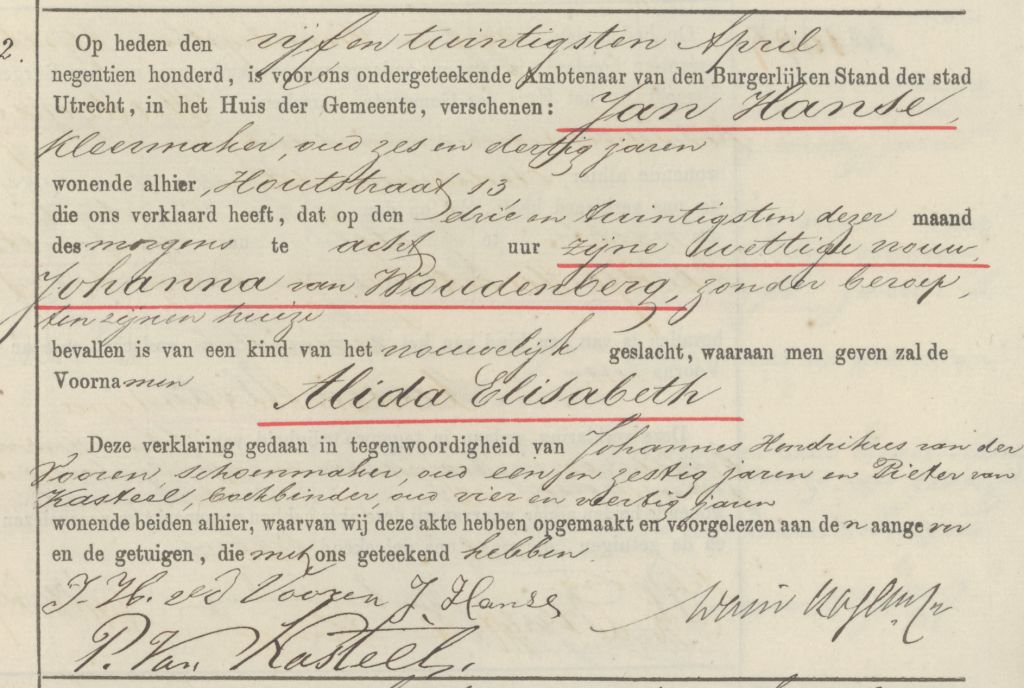 2.
Op heden den vijf en twintigsten April
negentien honderd, is voor ons ondergeteekende Ambtenaar van den Burgerlijken Stand der stad
Utrecht, in het Huis der Gemeente, verschenen: Jan Hanse,
kleermaker, oud zes en dertig jaren
wonende alhier, Houtstraat 13,
die ons verklaard heeft, dat op den drie en twintigsten dezer maand
des morgens te acht uur zijne wettige vrouw,
Johanna van Woudenberg, zonder beroep,
ten zijnen huize
bevallen is van een kind van het vrouwelijk geslacht, waaraan men geven zal de
Voornamen Alida Elisabeth
Deze verklaring gedaan in tegenwoordigheid van Johannes Hendrikus van der
Vooren, schoenmaker, oud een en zestig jaren en Pieter van
Kasteel, boekbinder, oud vier en veertig jaren
wonende beiden alhier, waarvan wij deze akte hebben opgemaakt en voorgelezen aan den aangever
en de getuigen, die met ons geteekend hebben.
J. H. vd Vooren J Hanse
P. Van Kasteel.